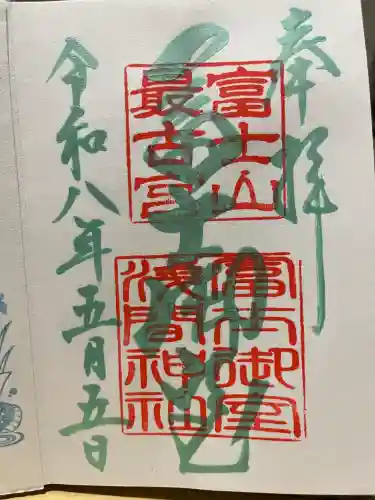 奉拝
富士山
最古宮
富士御室
淺間神社
令和八年五月五日